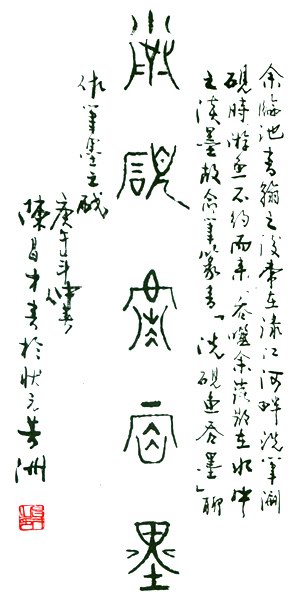 余臨池書翰之後常在淥江河畔洗筆涮
硯時游魚不約而來吞噬余蕩漾在水中
之淡墨故命筆篆書「洗硯魚吞墨」聊
洗硯魚吞墨
作筆墨之戲
庚午年
陳昌才書於狀元芳洲